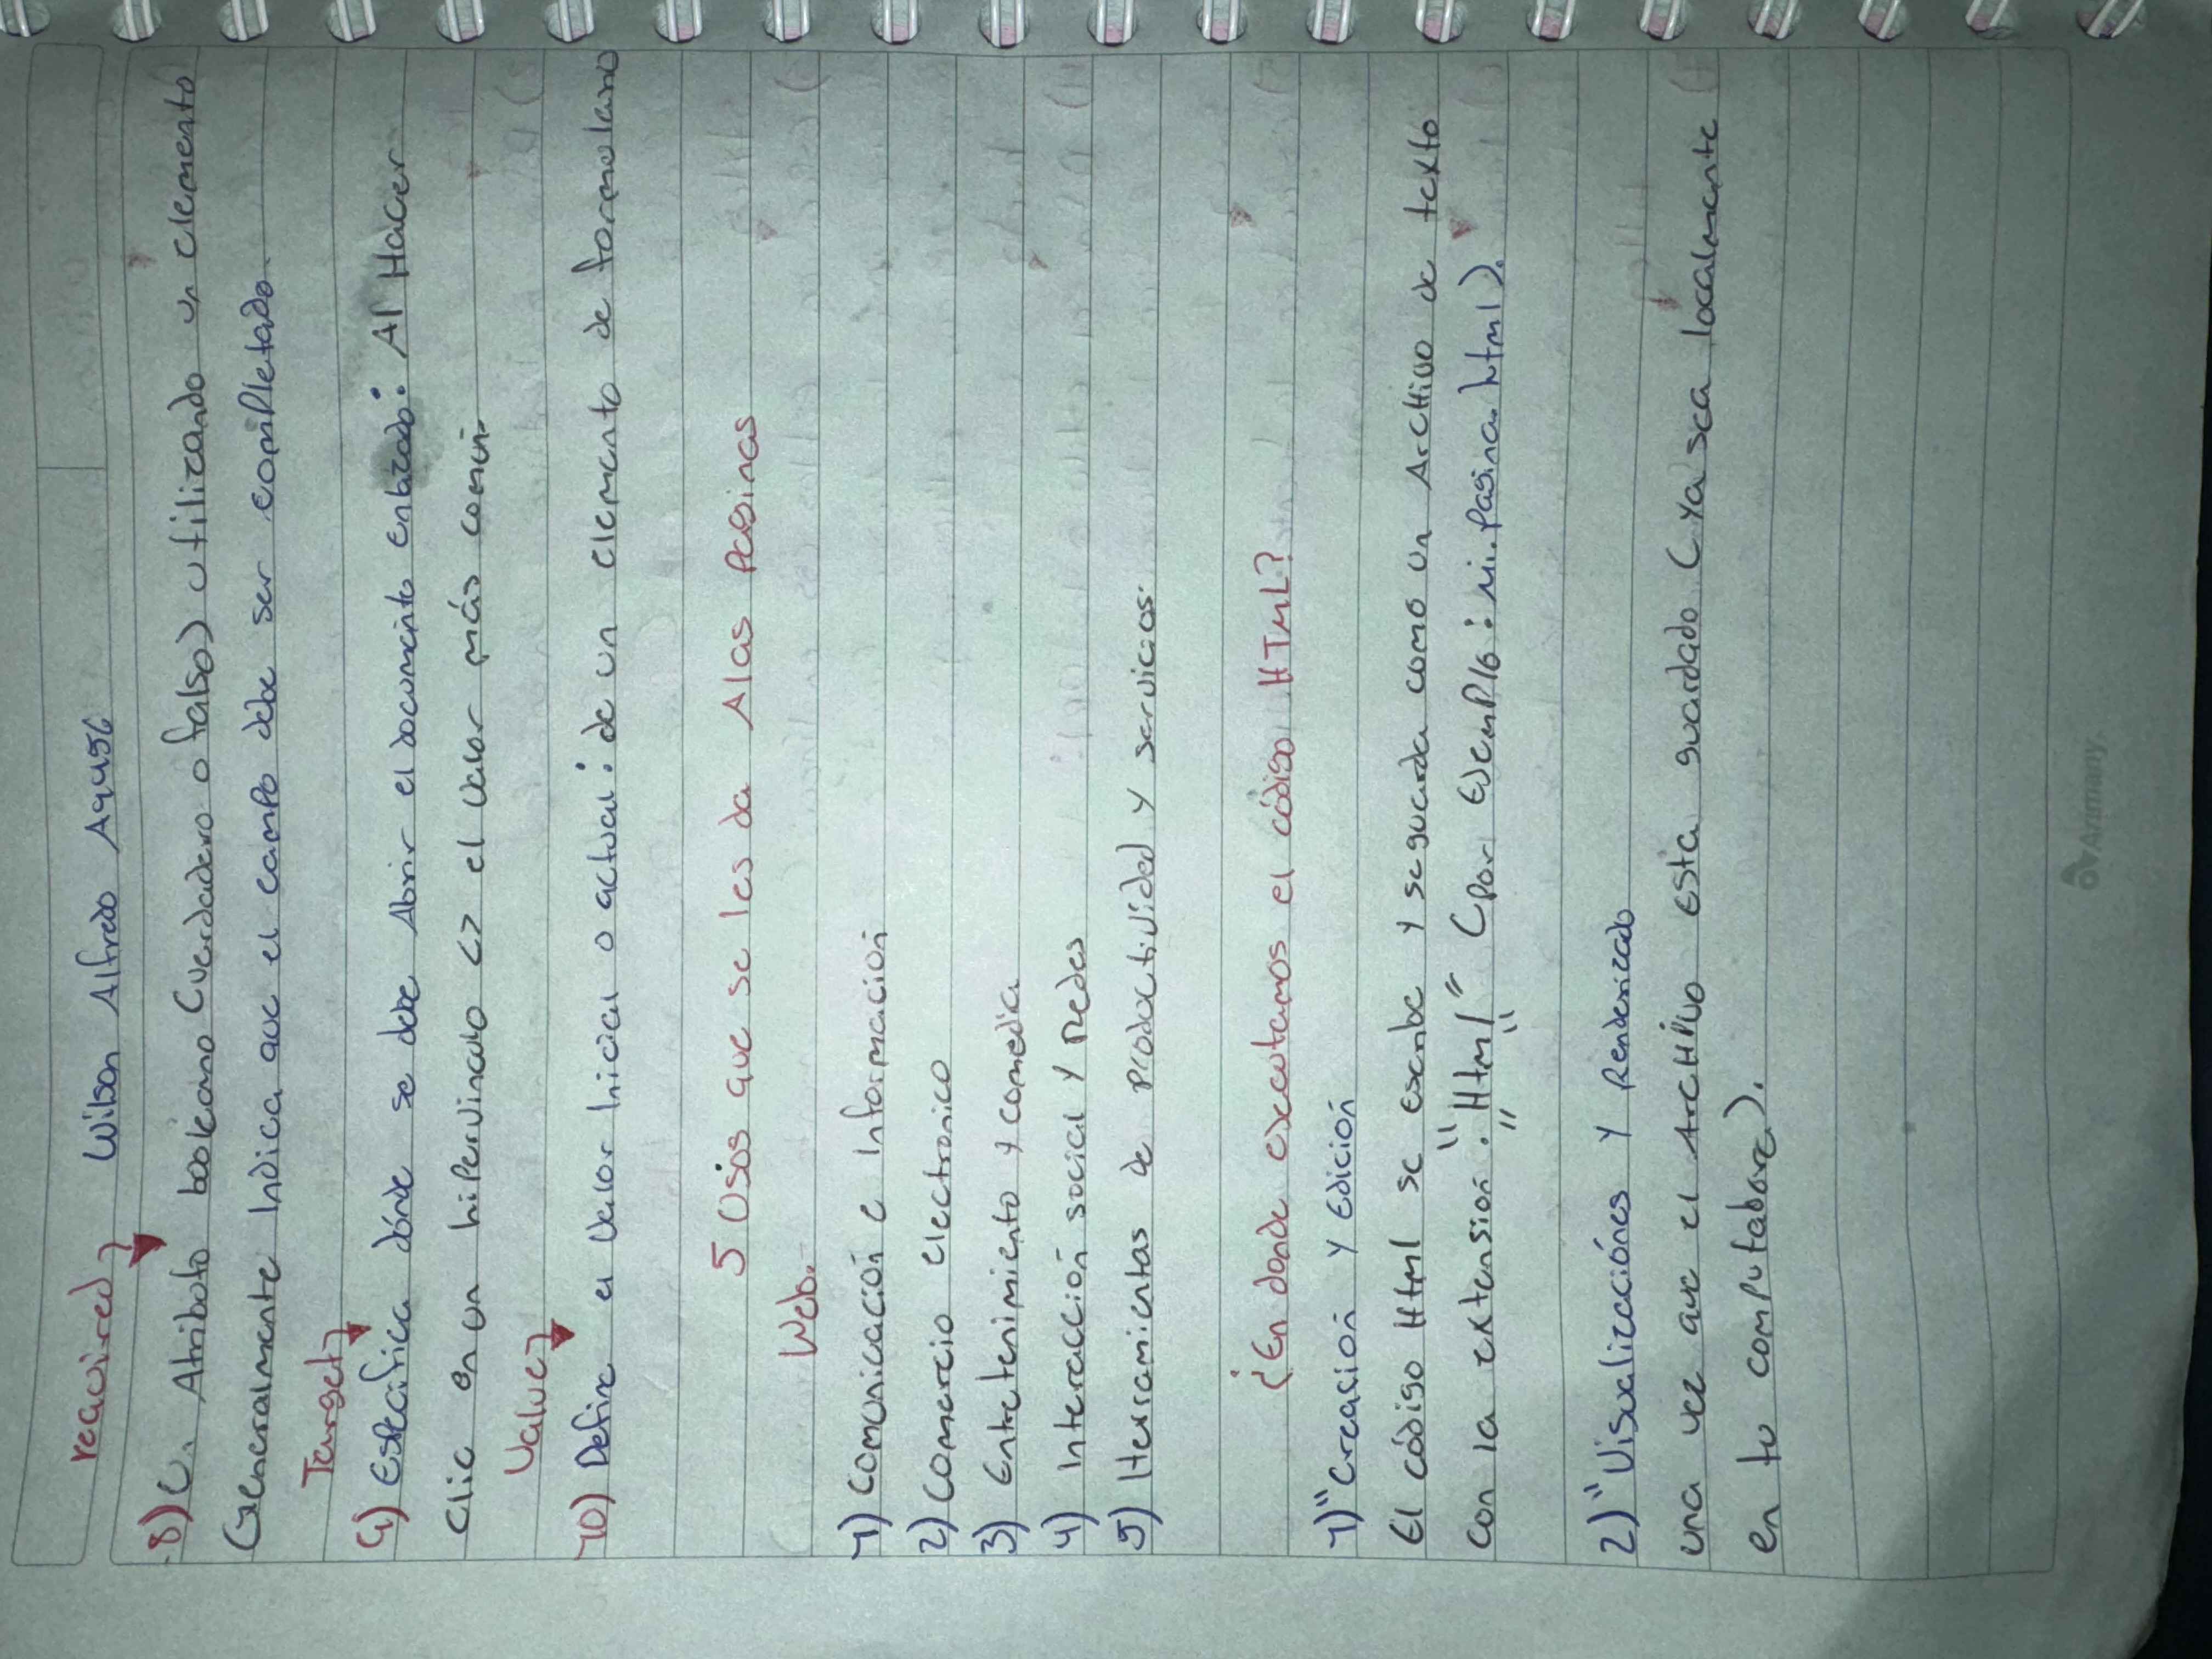 required Wilson Alfredo
8) U. Atributo booleano (verdadero o falso) utilizando un elemento
Generalmente Indica que el campo debe ser completado.
Target
9) Específica dónde se debe Abrir el documento enlazado: Al Hacer
Clic en un hipervinculo <> el valor más común
Value
10) Define el Valor Inicial o actual: de un elemento de formulario
5 Usos que se les da Alas Paginas
Web.
1) Comunicación e Información
2) Comercio electronico
3) Entretenimiento y comedia
4) Interacción social y redes
5) Herramientas de productividad y servicios.
¿En donde execulamos el código HTML?
1) "Creación y Edición
El código Html se escribe y se guarda como un Archivo de texto
Con la extensión. "Html" (Por Ejemplo: mi.Pagina.html).
2) "Visualizacciónes y Renderizado
una vez que el Archivo esta guardado (Ya sea localmente
en tu computabora).
Armany